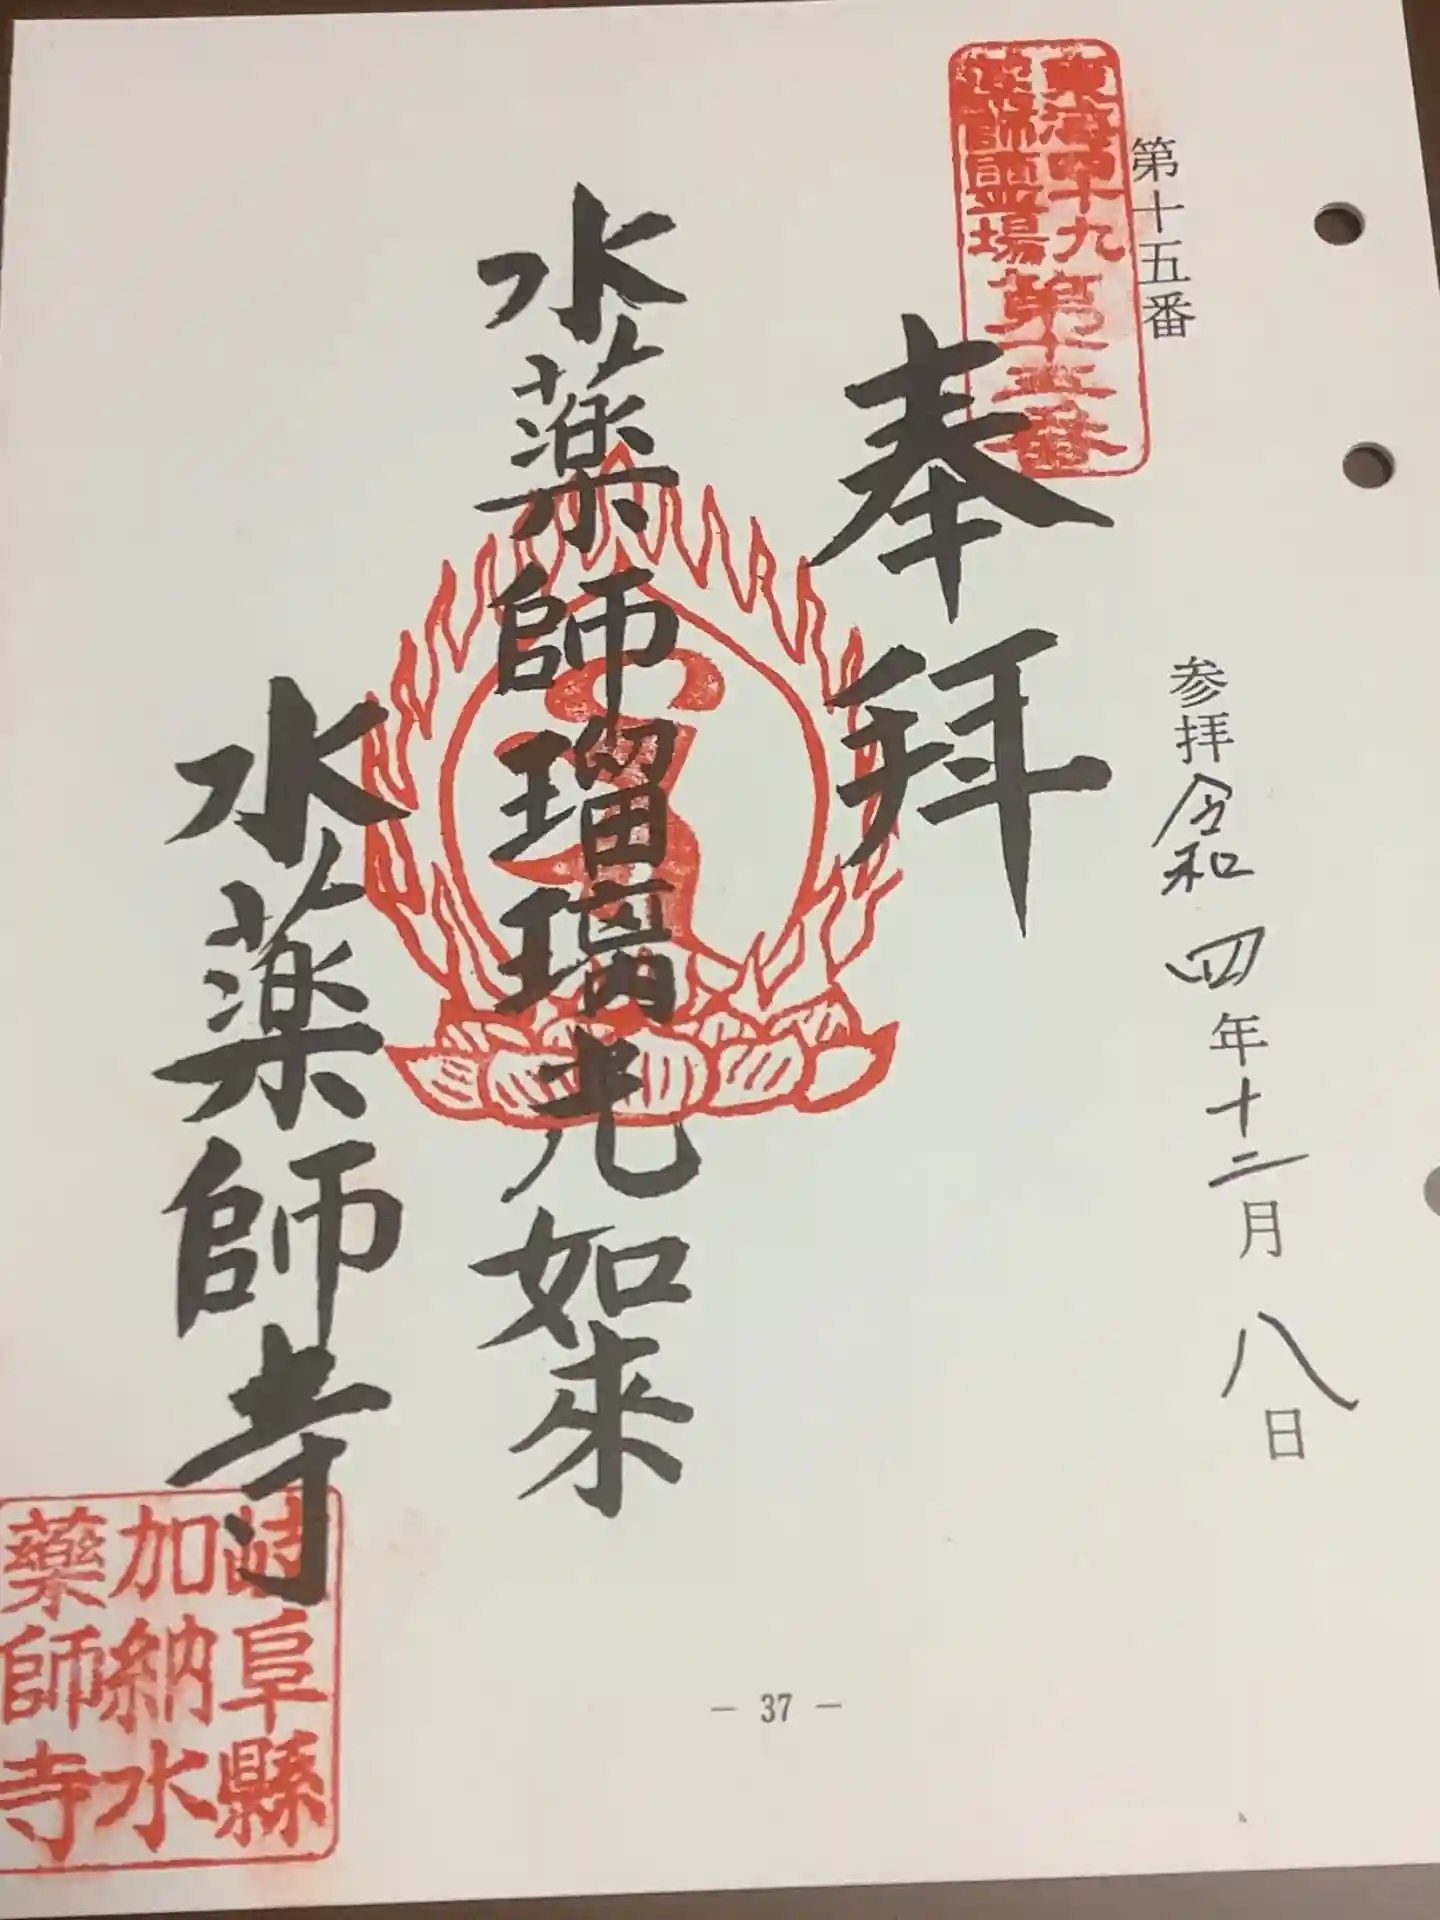 第十五番
参拝 令和四年十二月八日
東海四十九
薬師霊場
第十五番
奉拜
水薬師瑠璃光如來
水薬師寺
岐阜縣
加納水
藥師寺
− 37 −